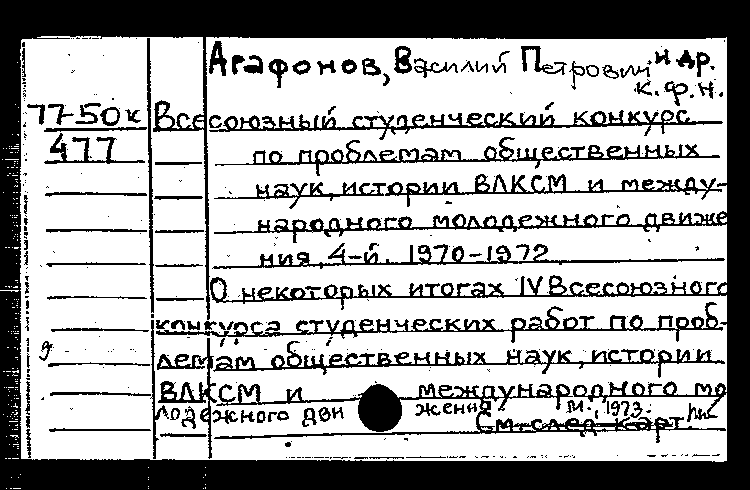 Агафонов, Василий Петрович и др.
к.ф.н.
77-50к Всесоюзный студенческий конкурс
477 по проблемам общественных
наук, истории ВЛКСМ и между-
народного молодежного движе
ния, 4-й. 1970-1972
О некоторых итогах IV Всесоюзного
конкурса студенческих работ по проб-
лемам общественных наук, истории
ВЛКСМ и международного мо
лодежного движения М., 1973.
См. след. карт.